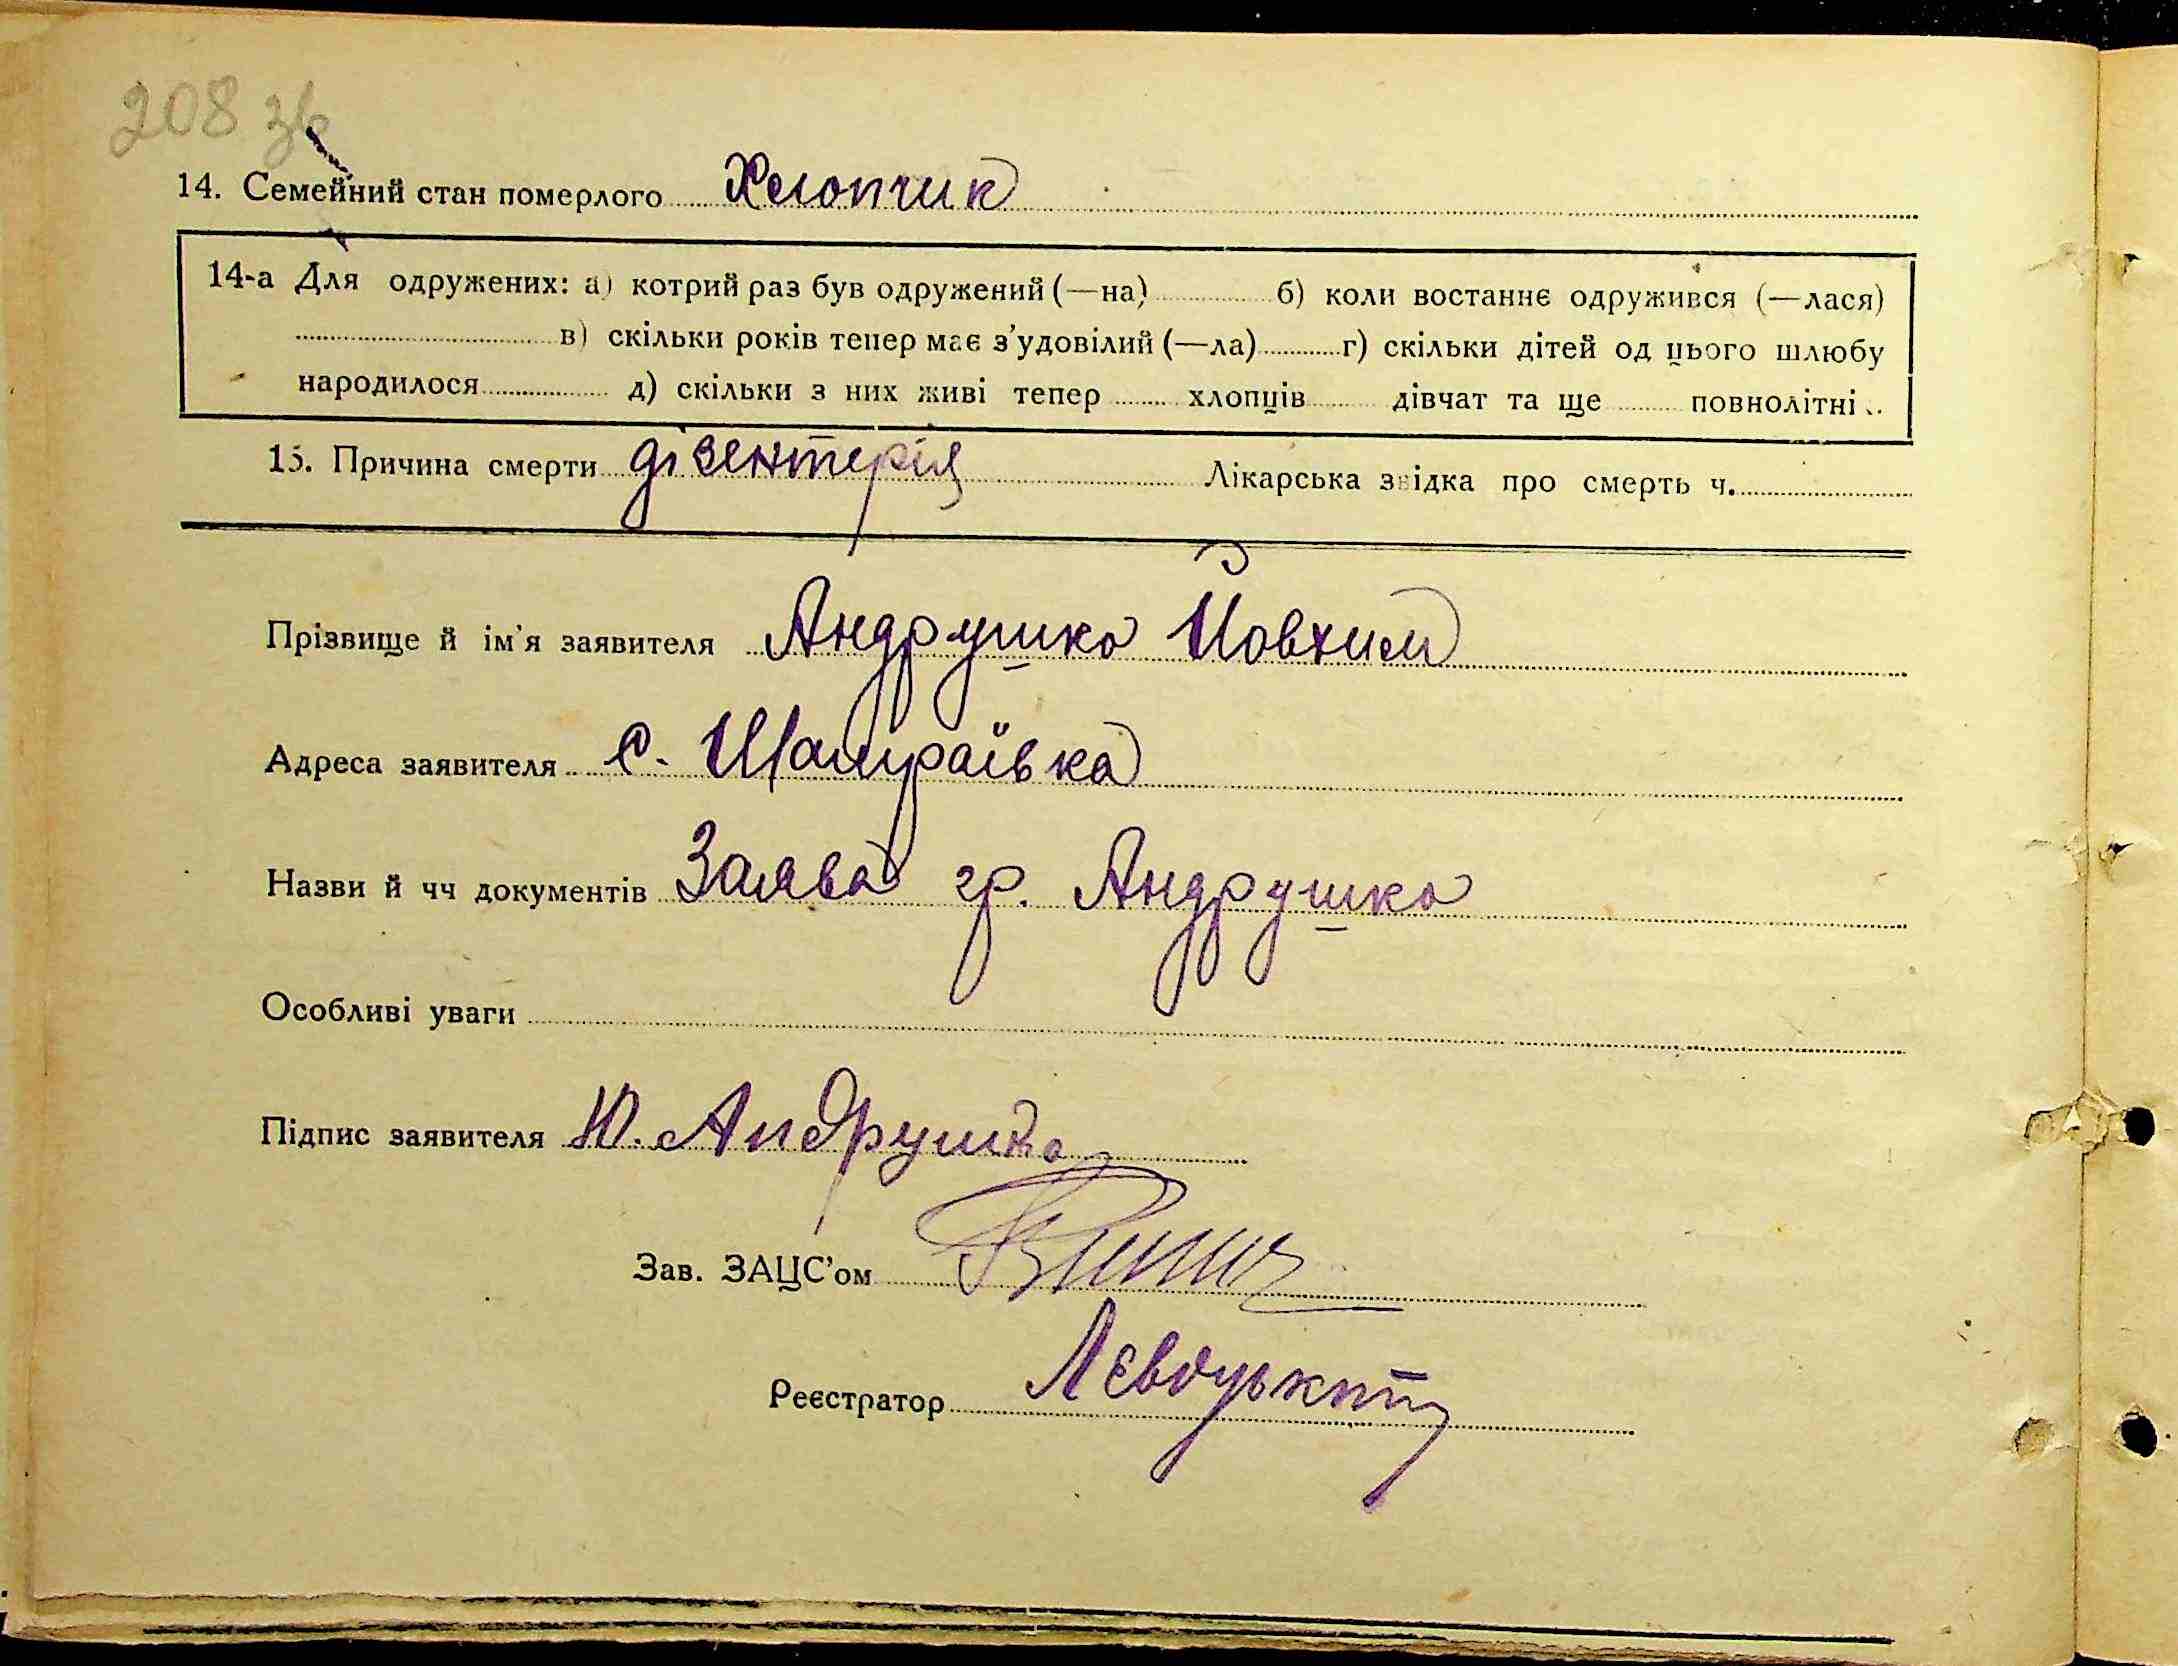 208 зв
14. Семейний стан померлого Хлопчик
14-а Для одружених: а) котрий раз був одружений (—на) б) коли востаннє одружився (—лася)
в) скільки років тепер має з’удовілий (—ла) г) скільки дітей од цього шлюбу
народилося д) скільки з них живі тепер хлопців дівчат та ще повнолітні
15. Причина смерти дізентерія Лікарська звідка про смерть ч.
Прізвище й ім’я заявителя Андрушко Йовхим
Адреса заявителя с. Шамраївка
Назви й чч документів Заява гр. Андрушко
Особливі уваги
Підпис заявителя Ю. Андрушко
Зав. ЗАЦС’ом
Реєстратор